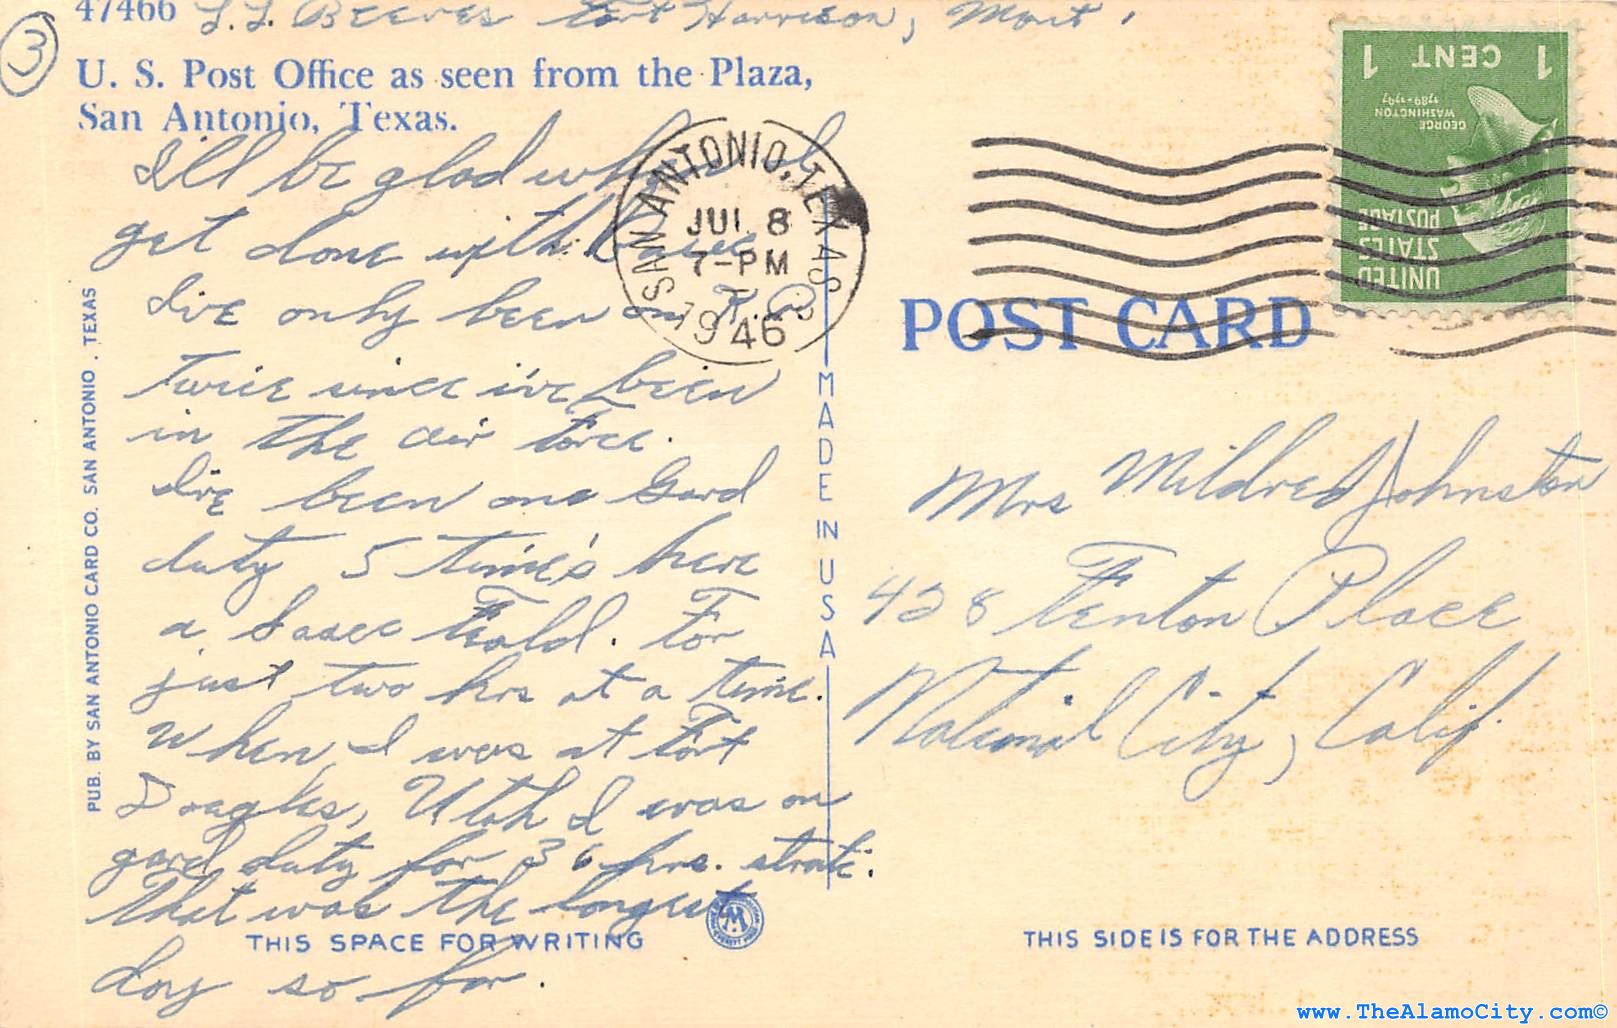 47466 L.L. Beeves Fort Harrison, Mont.
3
U. S. Post Office as seen from the Plaza,
San Antonio, Texas.
I'll be glad when
get done with
I've only been on K.P.
twice since i've been
in the air Force.
I've been one Gard
duty 5 time's here
a For
just two hrs at a time.
When I was at Fort
Douglas, Utah I was on
gard duty for 36 hrs. strate.
that was the longest
day so far.
PUB. BY SAN ANTONIO CARD CO. SAN ANTONIO . TEXAS
THIS SPACE FOR WRITING
M
SAN ANTONIO, TEXAS
JUL 8
7-PM
1946
MADE IN USA
1 CENT 1
GEORGE
WASHINGTON
1789-1797
UNITED
STATES
POSTAGE
POST CARD
Mrs Mildred Johnston
428 Fenton Place
National City, Calif.
THIS SIDE IS FOR THE ADDRESS
www.TheAlamoCity.com©